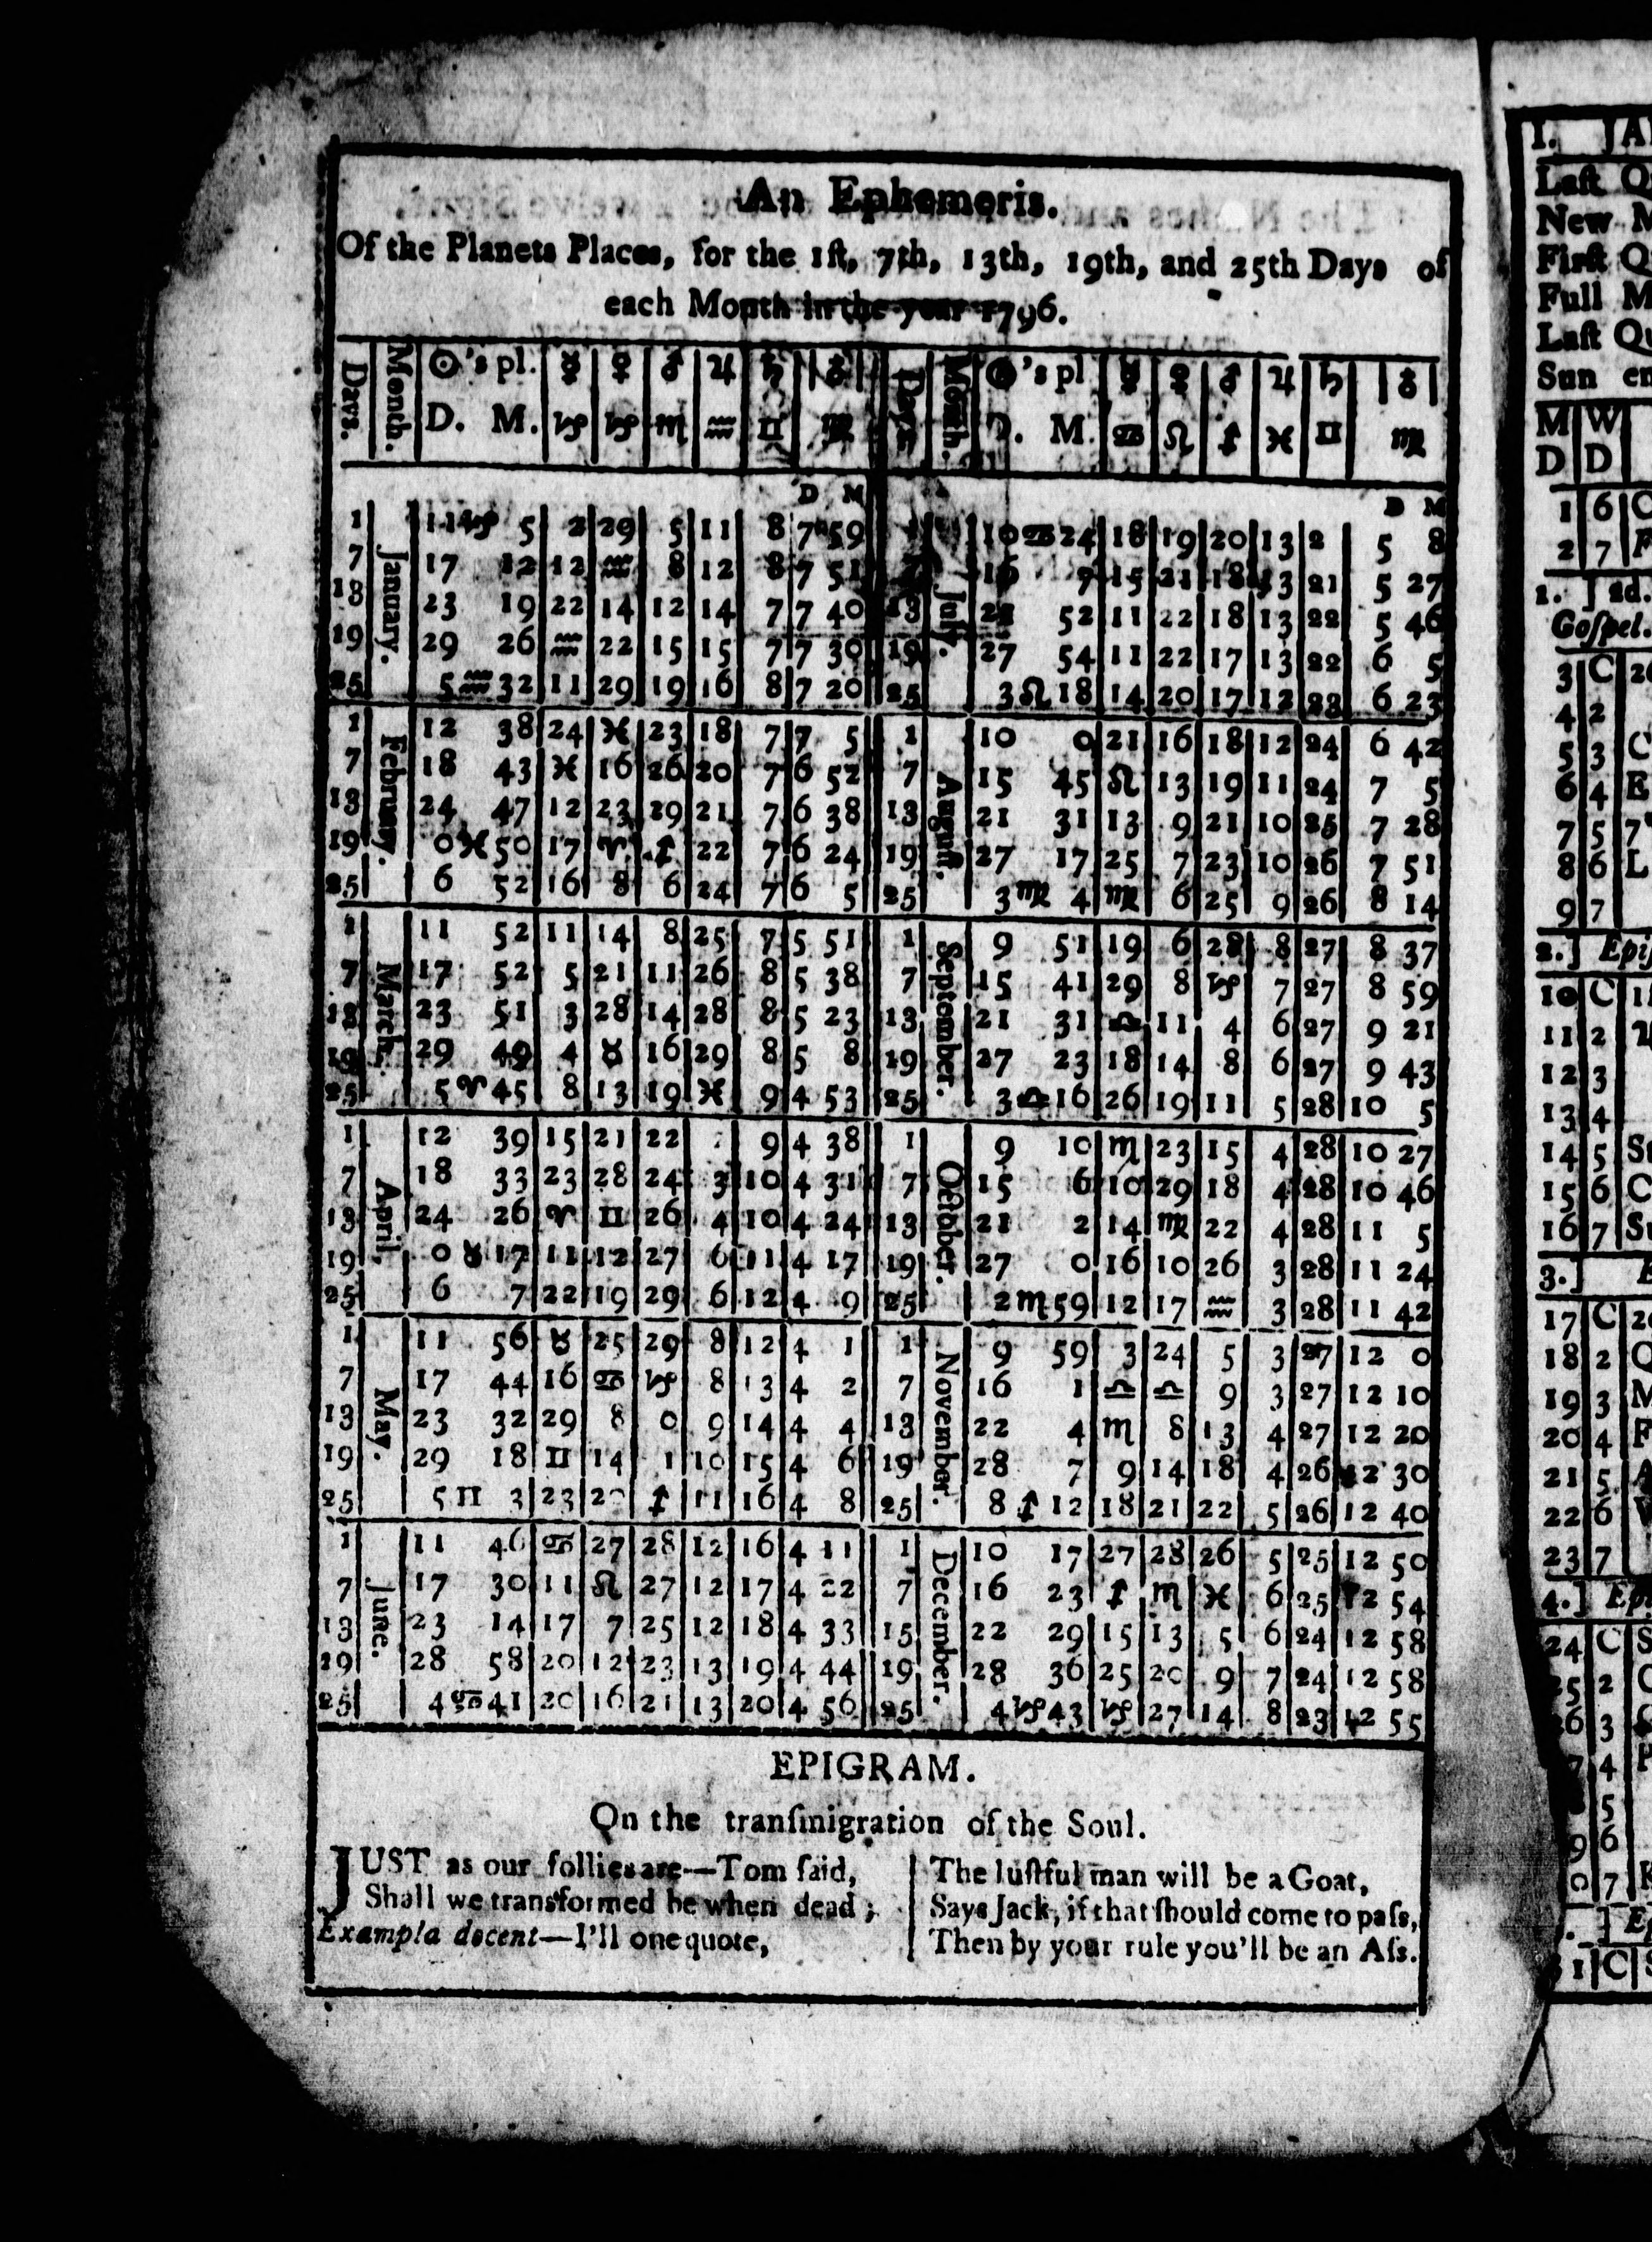 An Ephemeris.
Of the Planets Places, for the 1ſt, 7th, 13th, 19th, and 25th Days of
each Month in the year 1796.
Days. Month. ☉'s pl. ☿ ♀ ♂ ♃ ♄ ♁ Days Month. ☉'s pl ☿ ♀ ♂ ♃ ♄ ♁
D. M. ♑ ♑ ♏ ♒ ♊ ♍ D. M. ♋ ♌ ♐ ♓ ♊ ♍
D M D M
January. July.
1 11 ♑ 5 2 29 5 11 8 7 59 1 10 ♋ 24 18 19 20 13 2 5 8
7 17 12 12 ♒ 8 12 8 7 51 7 16 7 15 21 18 13 21 5 27
13 23 19 22 14 12 14 7 7 40 13 52 11 22 18 13 22 5 46
19 29 26 ♒ 22 15 15 7 7 30 19 27 54 11 22 17 13 22 6 5
25 5 ♒ 32 11 29 19 16 8 7 20 25 3 ♌ 18 14 20 17 12 23 6 23
February. Auguſt.
1 12 38 24 ♓ 23 18 7 7 5 1 10 0 21 16 18 12 24 6 42
7 18 43 ♓ 16 26 20 7 6 52 7 15 45 ♌ 13 19 11 24 7 5
13 24 47 12 23 29 21 7 6 38 13 21 31 13 9 21 10 25 7 28
19 0 ♓ 50 17 ♈ ♐ 22 7 6 24 19 27 17 25 7 23 10 26 7 51
25 6 52 16 8 6 24 7 6 5 25 3 ♍ 4 ♍ 6 25 9 26 8 14
March. September.
1 11 52 11 14 8 25 7 5 51 1 9 51 19 6 28 8 27 8 37
7 17 52 5 21 11 26 8 5 38 7 15 41 29 8 ♑ 7 27 8 59
13 23 51 3 28 14 28 8 5 23 13 21 31 ♎ 11 4 6 27 9 21
19 29 49 4 ♉ 16 29 8 5 8 19 27 23 18 14 8 6 27 9 43
25 5 ♈ 45 8 13 19 ♓ 9 4 53 25 3 ♎ 16 26 19 11 5 28 10 5
April. October.
1 12 39 15 21 22 9 4 38 1 9 10 ♏ 23 15 4 28 10 27
7 18 33 23 28 24 3 10 4 31 7 15 6 10 29 18 4 28 10 46
13 24 26 ♈ ♊ 26 4 10 4 24 13 21 2 14 ♍ 22 4 28 11 5
19 0 ♉ 17 11 12 27 6 11 4 17 19 27 0 16 10 26 3 28 11 24
25 6 7 22 19 29 6 12 4 9 25 2 ♏ 59 12 17 ♒ 3 28 11 42
May. November.
1 11 56 ♉ 25 29 8 12 4 1 1 9 59 3 24 5 3 27 12 0
7 17 44 16 ♋ ♑ 8 13 4 2 7 16 1 ♎ ♎ 9 3 27 12 10
13 23 32 29 8 0 9 14 4 4 13 22 4 ♏ 8 13 4 27 12 20
19 29 18 ♊ 14 1 10 15 4 6 19 28 7 9 14 18 4 26 12 30
25 5 ♊ 3 23 20 ♐ 11 16 4 8 25 8 ♐ 12 18 21 22 5 26 12 40
June. December.
1 11 46 ♋ 27 28 12 16 4 11 1 10 17 27 28 26 5 25 12 50
7 17 30 11 ♌ 27 12 17 4 22 7 16 23 ♐ ♏ ♓ 6 25 12 54
13 23 14 17 7 25 12 18 4 33 15 22 29 15 13 5 6 24 12 58
19 28 58 20 12 23 13 19 4 44 19 28 36 25 20 9 7 24 12 58
25 4 ♋ 41 20 16 21 13 20 4 56 25 4 ♑ 43 ♑ 27 14 8 23 12 55
EPIGRAM.
On the tranſmigration of the Soul.
JUST as our follies are—Tom ſaid,
Shall we transformed be when dead;
Exampla docent—I'll one quote,
The luſtful man will be a Goat,
Says Jack, if that ſhould come to paſs,
Then by your rule you'll be an Aſs.
I.
Laſt
New
Firſt
Full
Laſt
Sun
M W
D D
1 6
2 7
1. ] 2d.
Goſpel.
3 C
4 2
5 3
6 4
7 5
8 6
9 7
2.]
10 C
11 2
12 3
13 4
14 5
15 6
16 7
3.]
17 C
18 2
19 3
20 4
21 5
22 6
23 7
4.]
24 C
25 2
26 3
4
5
6
7
C